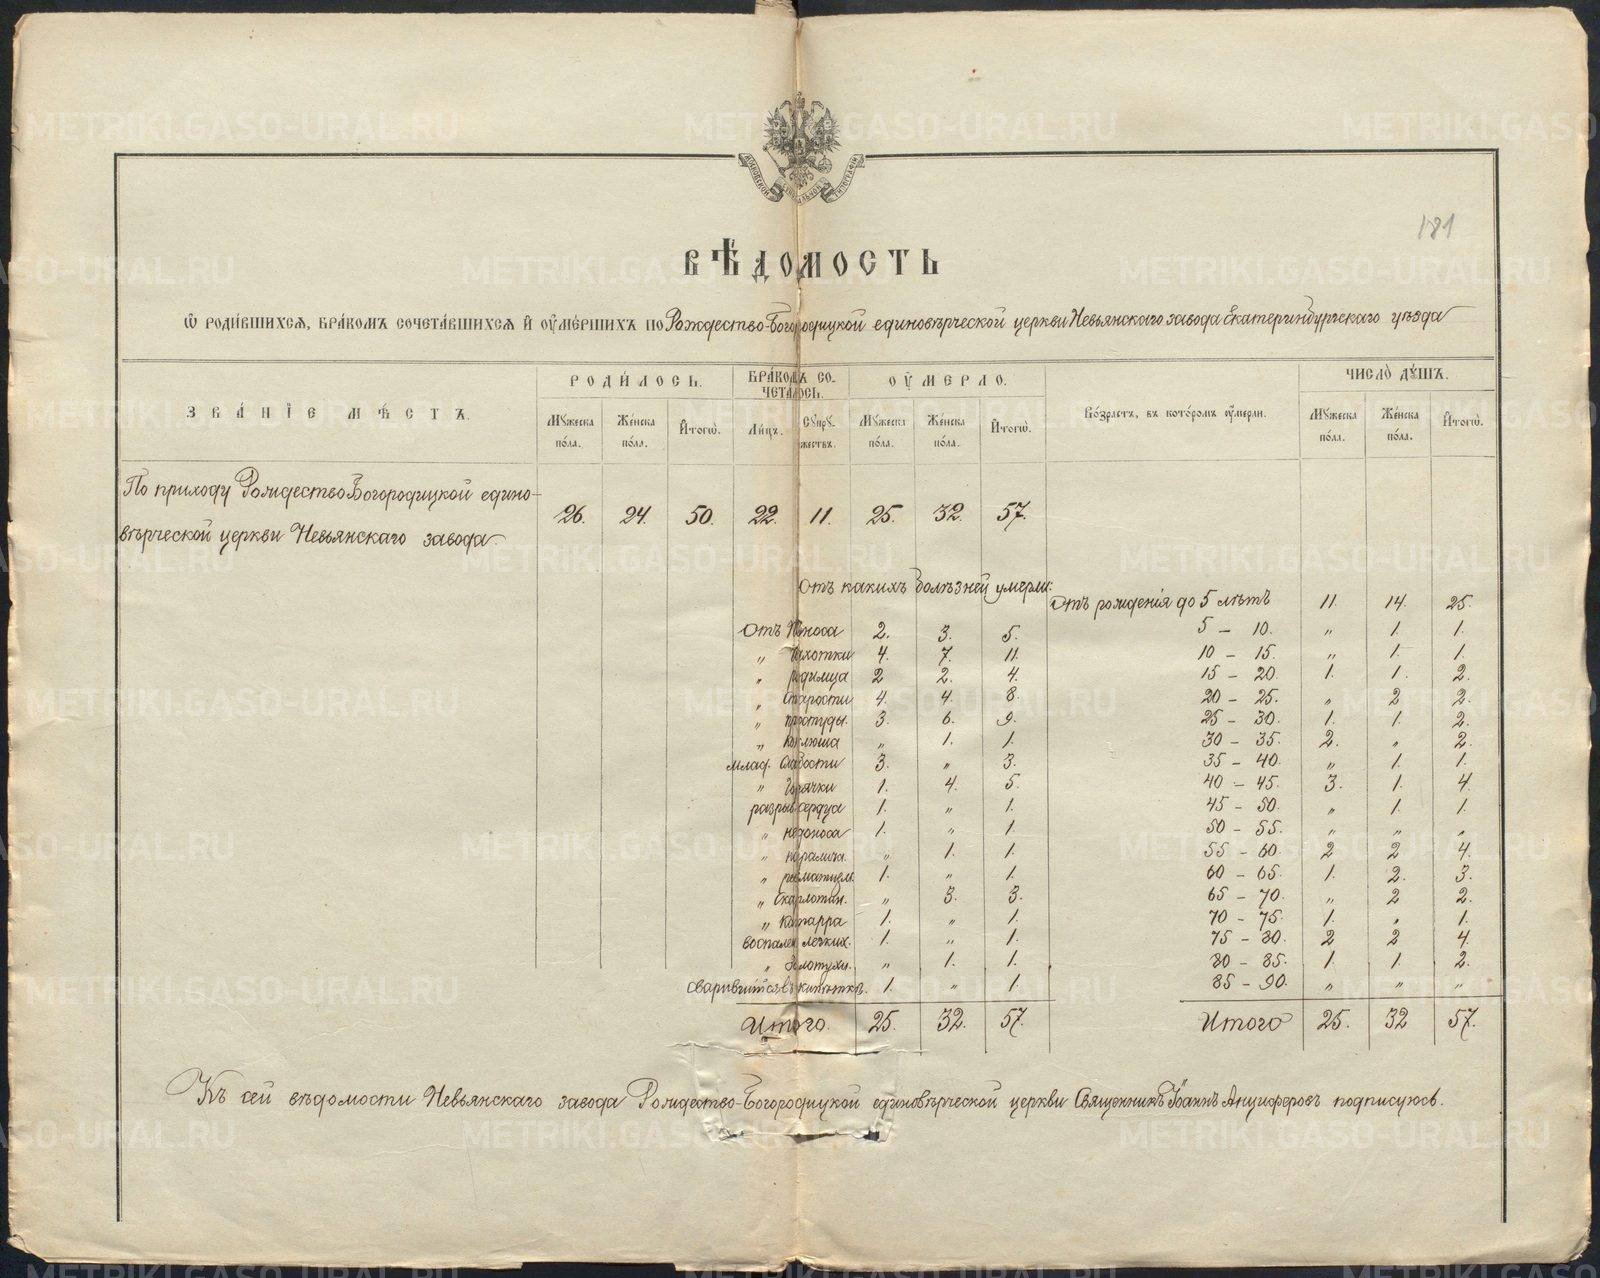 METRIKI.GASO-URAL.RU
МОСКОВСКОЙ СѴНОДАЛЬНОЙ ТИПОГРАФІИ
181
ВѢДОМОСТЬ
Ѡ РОДИ́ВШИХСѦ, БРА́КОМЪ СОЧЕТА́ВШИХСѦ И҆ ОУ҆МЕ́РШИХЪ ПО Рождество-Богородицкой единовѣрческой церкви Невьянскаго завода Екатеринбургскаго уѣзда
ЗВА́НІЕ МѢ́СТЪ. РОДИ́ЛОСЬ. БРА́КОМЪ СОЧЕТА́ЛОСЬ. ОУ҆́МЕРЛО. Во́зрастъ, въ кото́ромъ ᲂу҆́мерли. ЧИСЛО̀ ДꙊ́ШЪ.
Мꙋ́жеска по́ла. Же́нска по́ла. И҆тогѡ̀. Ли́цъ. Сꙋпрꙋ́жествъ. Мꙋ́жеска по́ла. Же́нска по́ла. И҆тогѡ̀. Мꙋ́жеска по́ла. Же́нска по́ла. И҆тогѡ̀.
По приходу Рождество Богородицкой едино-
вѣрческой церкви Невьянскаго завода. 26. 24. 50. 22. 11. 25. 32. 57.
Отъ какихъ болѣзней умерли:
Отъ рожденія до 5 лѣтъ 11. 14. 25.
Отъ поноса 2. 3. 5. 5 – 10. „ 1. 1.
„ Чахотки 4. 7. 11. 10 – 15. „ 1. 1.
„ родимца 2 2. 4. 15 – 20. 1. 1. 2.
„ Старости 4. 4. 8. 20 – 25. „ 2 2.
„ простуды. 3. 6. 9. 25 – 30. 1. 1. 2.
„ коклюша „ 1. 1. 30 – 35. 2. „ 2.
млад. слабости 3. „ 3. 35 – 40. „ 1. 1.
„ Горячки 1. 4. 5. 40 – 45. 3. 1. 4.
разрыв. сердца 1. „ 1. 45 – 50. „ 1. 1.
„ недоноса 1. „ 1. 50 – 55. „ „ „
„ паралича. „ 1. 1. 55 – 60. 2 2 4.
„ ревматизм. 1. „ 1. 60 – 65. 1. 2. 3.
„ Скарлотин. „ 3. 3. 65 – 70. „ 2 2.
„ Катарра 1. „ 1. 70 – 75. 1. „ 1.
воспален. легких. 1. „ 1. 75 – 80. 2 2 4.
„ Золотухи. „ 1. 1. 80 – 85. 1. 1. 2.
сварившійся въ кипяткѣ. 1. „ 1. 85 – 90. „ „ „
Итого. 25. 32. 57. Итого 25. 32 57.
Къ сей вѣдомости Невьянскаго завода Рождество-Богородицкой единовѣрческой церкви Священникъ Іоаннъ Анциферовъ подписуюсь.